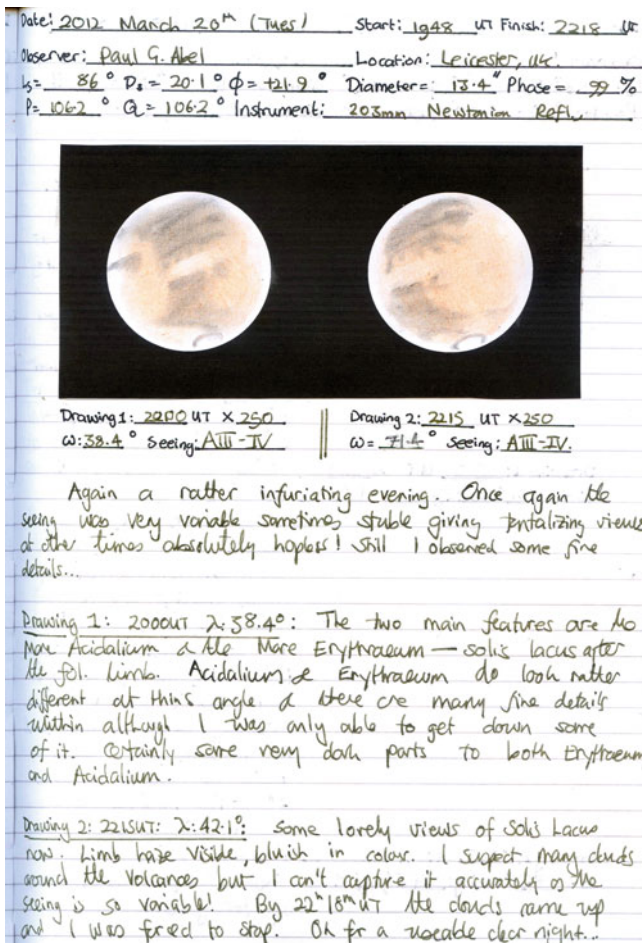 Date: 2012 March 20th (Tues) Start: 1948 UT Finish: 2218 UT
Observer: Paul G. Abel Location: Leicester, UK
Ls= 86° Ds= 20.1° Φ= +21.9° Diameter= 13.4" Phase= 99%
P= 106.2° Q= 106.2° Instrument: 203mm Newtonian Refl.
Drawing 1: 2200 UT X 250
ω: 38.4° Seeing: AIII-IV
Drawing 2: 2215 UT X 250
ω= 71.4° Seeing: AIII-IV.
Again a rather infuriating evening. Once again the
seeing was very variable sometimes stable giving tentalizing views
at other times absolutely hopless! Still I observed some fine
details...
Drawing 1: 2000UT λ:38.4°: The two main features are
Mare Acidalium & the Mare Erythraeum — solis lacus after
the fol. limb. Acidalium & Erythraeum do look rather
different at this angle & there are many fine details
within although I was only able to get down some
of it. Certainly some very dark parts to both Erythraeum
and Acidalium.
Drawing 2: 2215UT: λ:42.1°: Some lovely views of Solis Lacus
now. Limb haze visible, bluish in colour. I suspect many clouds
around the volcanoes but I can't capture it accurately as the
seeing is so variable! By 22h18m UT the clouds came up
and I was forced to stop. OK for a useable clear night...